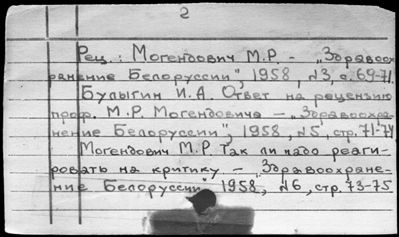 2
Рец.: Могендович М.Р. - „Здравоох
ранение Белоруссии", 1958, №3, с. 69-71.
Булыгин И.А. Ответ на рецензию
проф. М.Р. Могендовича – „Здравоохра-
нение Белоруссии", 1958, №5, стр. 71-74
Могендович М.Р. Так ли надо реаги-
ровать на критику – „Здравоохране-
ние Белоруссии" 1958, №6, стр. 73-75